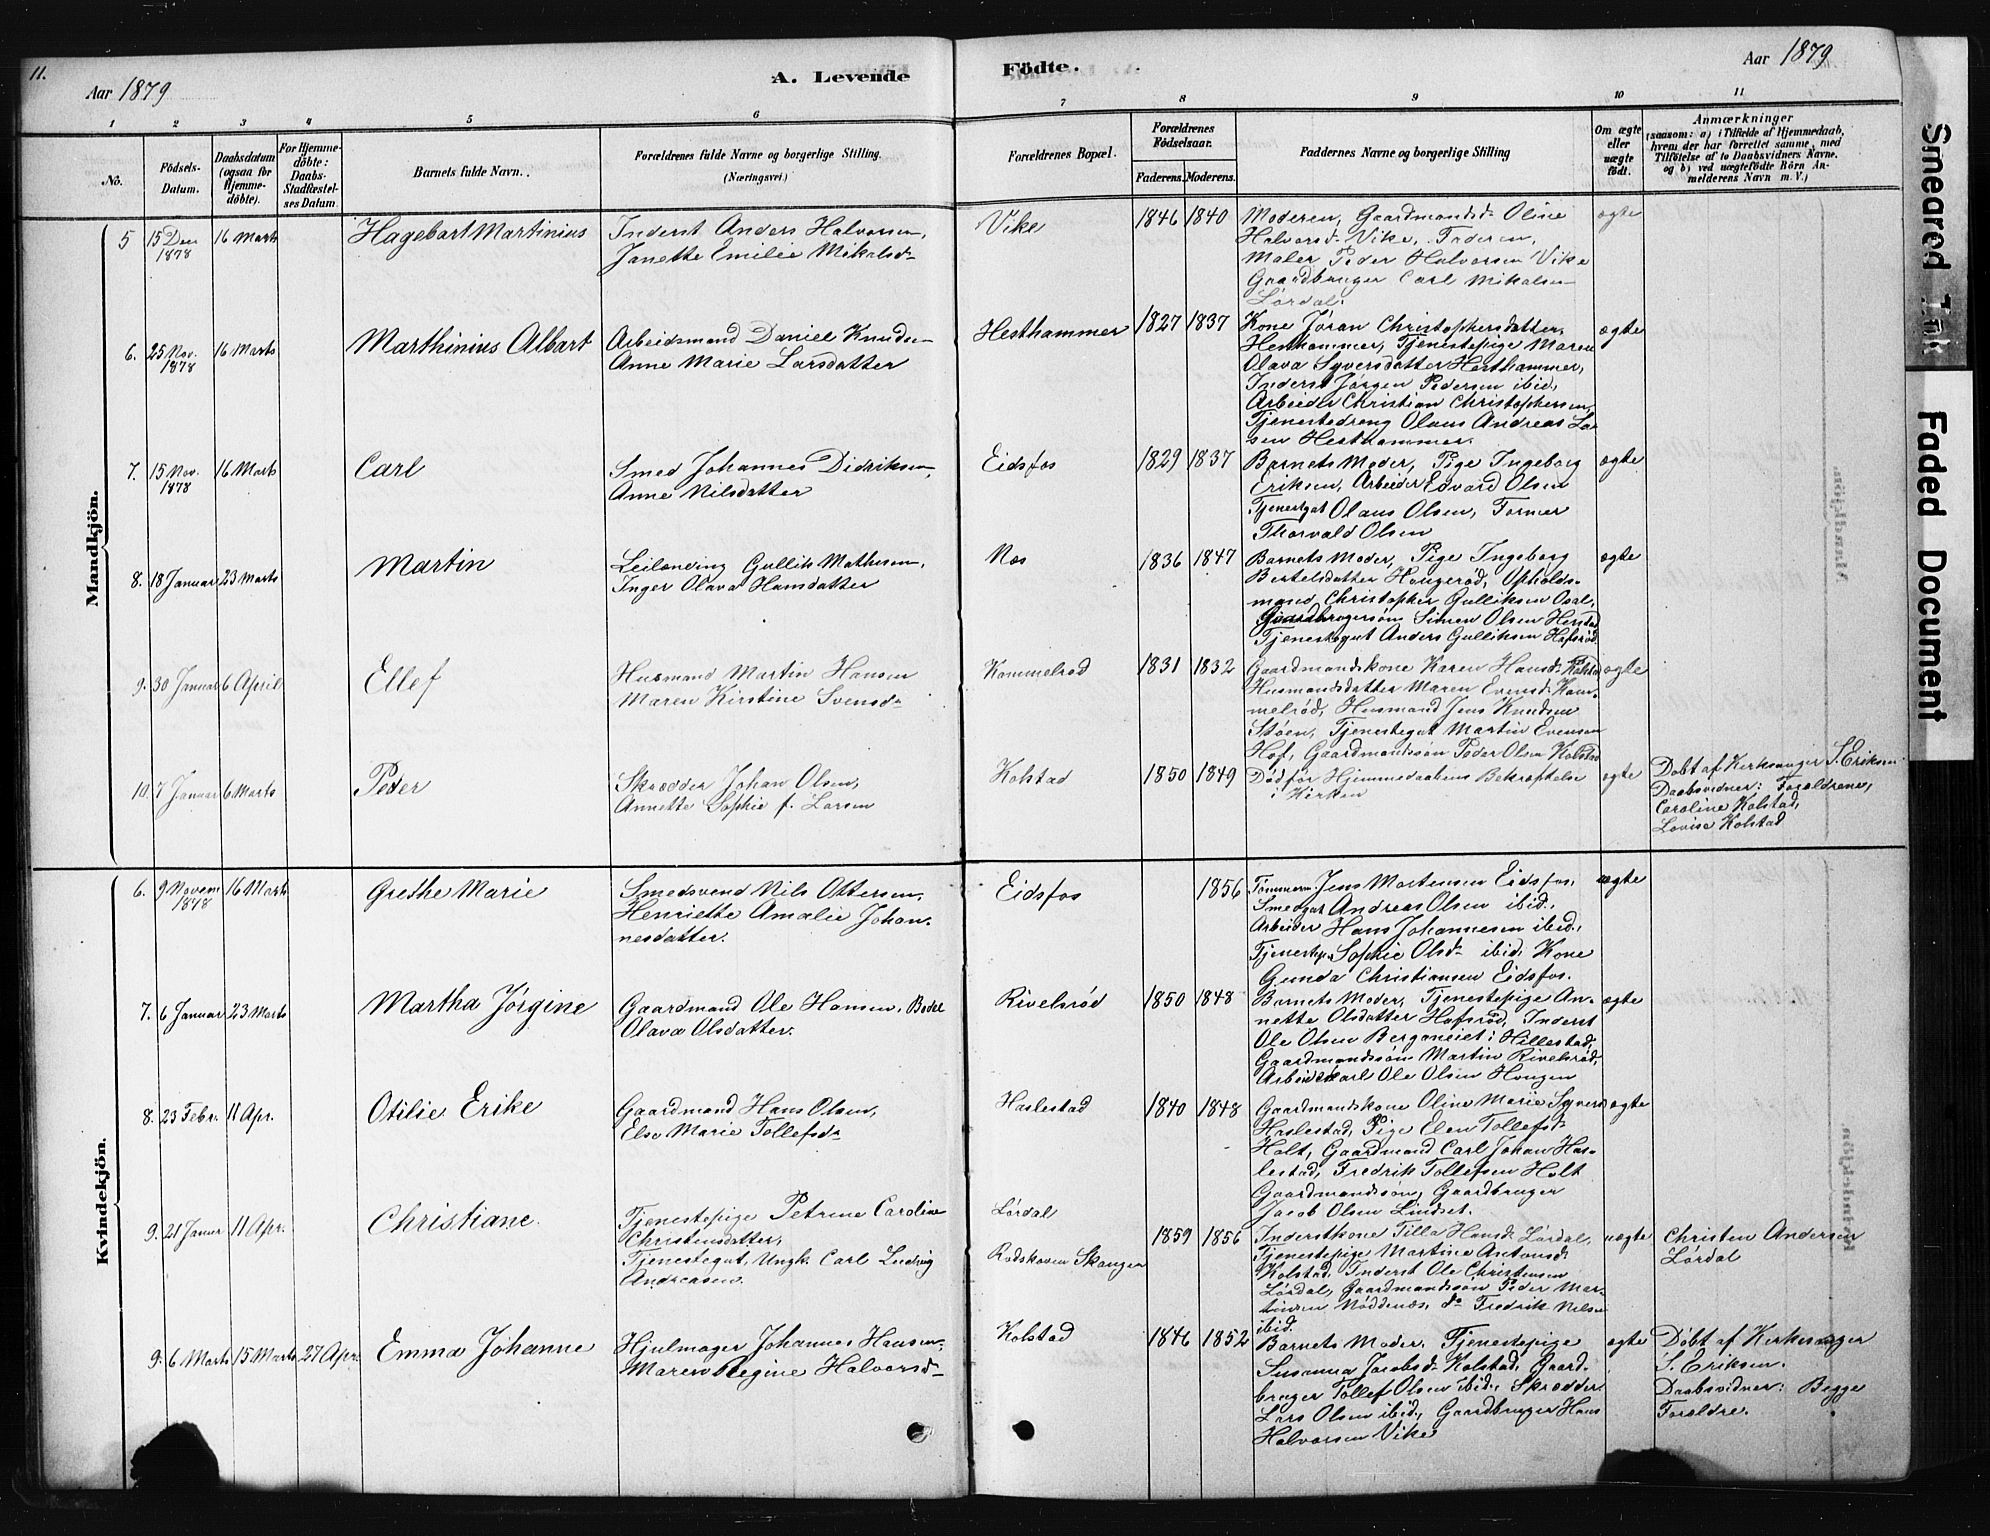 11.
Aar 1879
A. Levende
Födte.
Aar 1879
1 2 3 4 5 6 7 8 9 10 11
No.
Födsels-Datum.
Daabsdatum (ogsaa for Hjemme-döbte).
For Hjemme-döbte: Daabs-Stadfæstel-ses Datum.
Barnets fulde Navn.
Forældrenes fulde Navne og borgerlige Stilling. (Næringsvei.)
Forældrenes Bopæl.
Forældrenes Födselsaar.
Faderens. Moderens.
Faddernes Navne og borgerlige Stilling
Om ægte eller uægte födt.
Anmærkninger
(saasom: a) i Tilfælde af Hjemmedaab, hvem der har forrettet samme, med Tilföielse af to Daabsvidners Navne, og b) ved uægtefödte Börn An-melderens Navn m. V.)
Mandkjön.
5 15 Dec 1878 16 Marts Hagebart Martinius
Inderst Anders Halvorsen,
Janette Emilie Mikalsd-
Vike 1846 1840
Moderen, Gaardmandsd- Oline
Halvorsd- Vike, Faderen,
Maler Peder Halvorsen Vike
Gaardbruger Carl Mikalsen
Lørdal.
ægte
6. 25 Nov. 1878 16 Marts Marthinius Albart
Arbeidsmand Daniel Knuds-
Anne Marie Larsdatter
Hesthammer 1827 1837
Kone Jøran Christophersdatter,
Hesthammer, Tjenestepige Maren
Olava Syversdatter Hesthammer,
Inderst Jørgen Pedersen ibid,
Arbeider Christian Christophersen,
Tjenestedreng Olaus Andreas Lar
sen Hesthammer.
ægte
7. 15 Nov. 1878 16 Marts Carl
Smed Johannes Didriksen,
Anne Nilsdatter
Eidsfos 1829 1837
Barnets Moder, Pige Ingeborg
Eriksen, Arbeider Edvard Olsen
Tjenestgut Olaus Olsen, Former
Thorvald Olsen
ægte
8. 18 Januar 23 Marts Martin
Leilending Gullik Mathisen,
Inger Olava Hansdatter
Næs 1836 1847
Barnets Moder, Pige Ingeborg
Bertelsdatter Haugerød, Opholds-
mand Christopher Gulliksen Osal,
Gaardbrugersøn Simen Olsen Herstad
Tjenestegut Anders Gulliksen Hafsrød
ægte
9. 30 Januar 6 April Ellef
Husmand Martin Hansen
Maren Kirstine Svensd-
Kommelrød 1831 1832
Gaardmandskone Karen Hansd- Kolstad
Husmandsdatter Maren Evensd- Kom-
melrød, Husmand Jens Knudsen
Støen, Tjenestegut Martin Evensen
Hof, Gaardmandssøn Peder Olsen Kolstad
ægte
10. 7 Januar 6 Marts Peder
Skrædder Johan Olsen,
Annette Sophie f. Larsen
Kolstad 1850 1849
Død før Hjemmedaabens Bekræftelse
i Kirken
ægte
Døbt af Kirkesanger S. Eriksen.
Daabsvidner: Forældrene,
Caroline Kolstad,
Lovise Kolstad
Kvindekjön.
6. 9 Novem 1878 16 Marts Grethe Marie
Smedsvend Nils Ottersen,
Henriette Amalie Johan-
nesdatter.
Eidsfos 1856
Tømmerm Jens Mortensen Eidsfos,
Smedgut Andreas Olsen ibid.,
Arbeider Hans Johannesen ibid.,
Tjenestep. Sophie Olsd- ibid, Kone
Gunda Christiansen Eidsfos.
ægte
7. 6 Januar 23 Marts Martha Jørgine
Gaardmand Ole Hansen, Bodel
Olava Olsdatter.
Rivelsrød 1850 1848
Barnets Moder, Tjenestepige An-
nette Olsdatter Hafsrød, Inderst
Ole Olsen Berganeiet i Hillestad,
Gaardmandssøn Martin Rivelsrød,
Arbeidskarl Ole Olsen Haugen
ægte
8. 23 Febr. 11 Apr. Otilie Erike
Gaardmand Hans Olsen,
Else Marie Tollefsd-
Haslestad 1840 1848
Gaardmandskone Oline Marie Syversd
Haslestad, Pige Elen Tollefsd-
Holt, Gaardmand Carl Johan Has-
lestad, Fredrik Tollefsen Holt
Gaardmandssøn, Gaardbruger
Jacob Olsen Lindset.
ægte
9. 21 Januar 11 Apr. Christiane
Tjenestepige Petrine Caroline
Christensdatter,
Tjenestegut, Ungk. Carl Ludvig
Andreasen.
Lørdal
Rødskoven Skauger
1859 1856
Inderstkone Tilla Hansd- Lørdal,
Tjenestepige Martine Antonsd-
Kolstad, Inderst Ole Christensen
Lørdal, Gaardmandssøn Peder Mar-
tinsen Nøddenæs, do Fredrik Nilsen
ibid.
uægte
Christen Andersen
Lørdal
9. 6 Marts 15 Marts 27 Apr. Emma Johanne
Hjulmager Johannes Hansen,
Maren Regine Halvorsd-
Kolstad 1846 1852
Barnets Moder, Tjenestepige
Susanna Jacobsd- Kolstad, Gaard-
bruger Tollef Olsen ibid., Skrædder
Lars Olsen ibid., Gaardbruger Hans
Halvorsen Vike
ægte
Døbt af Kirkesanger
S. Eriksen.
Daabsvidner: Begge
Forældre.
Smeared Ink
Faded Document